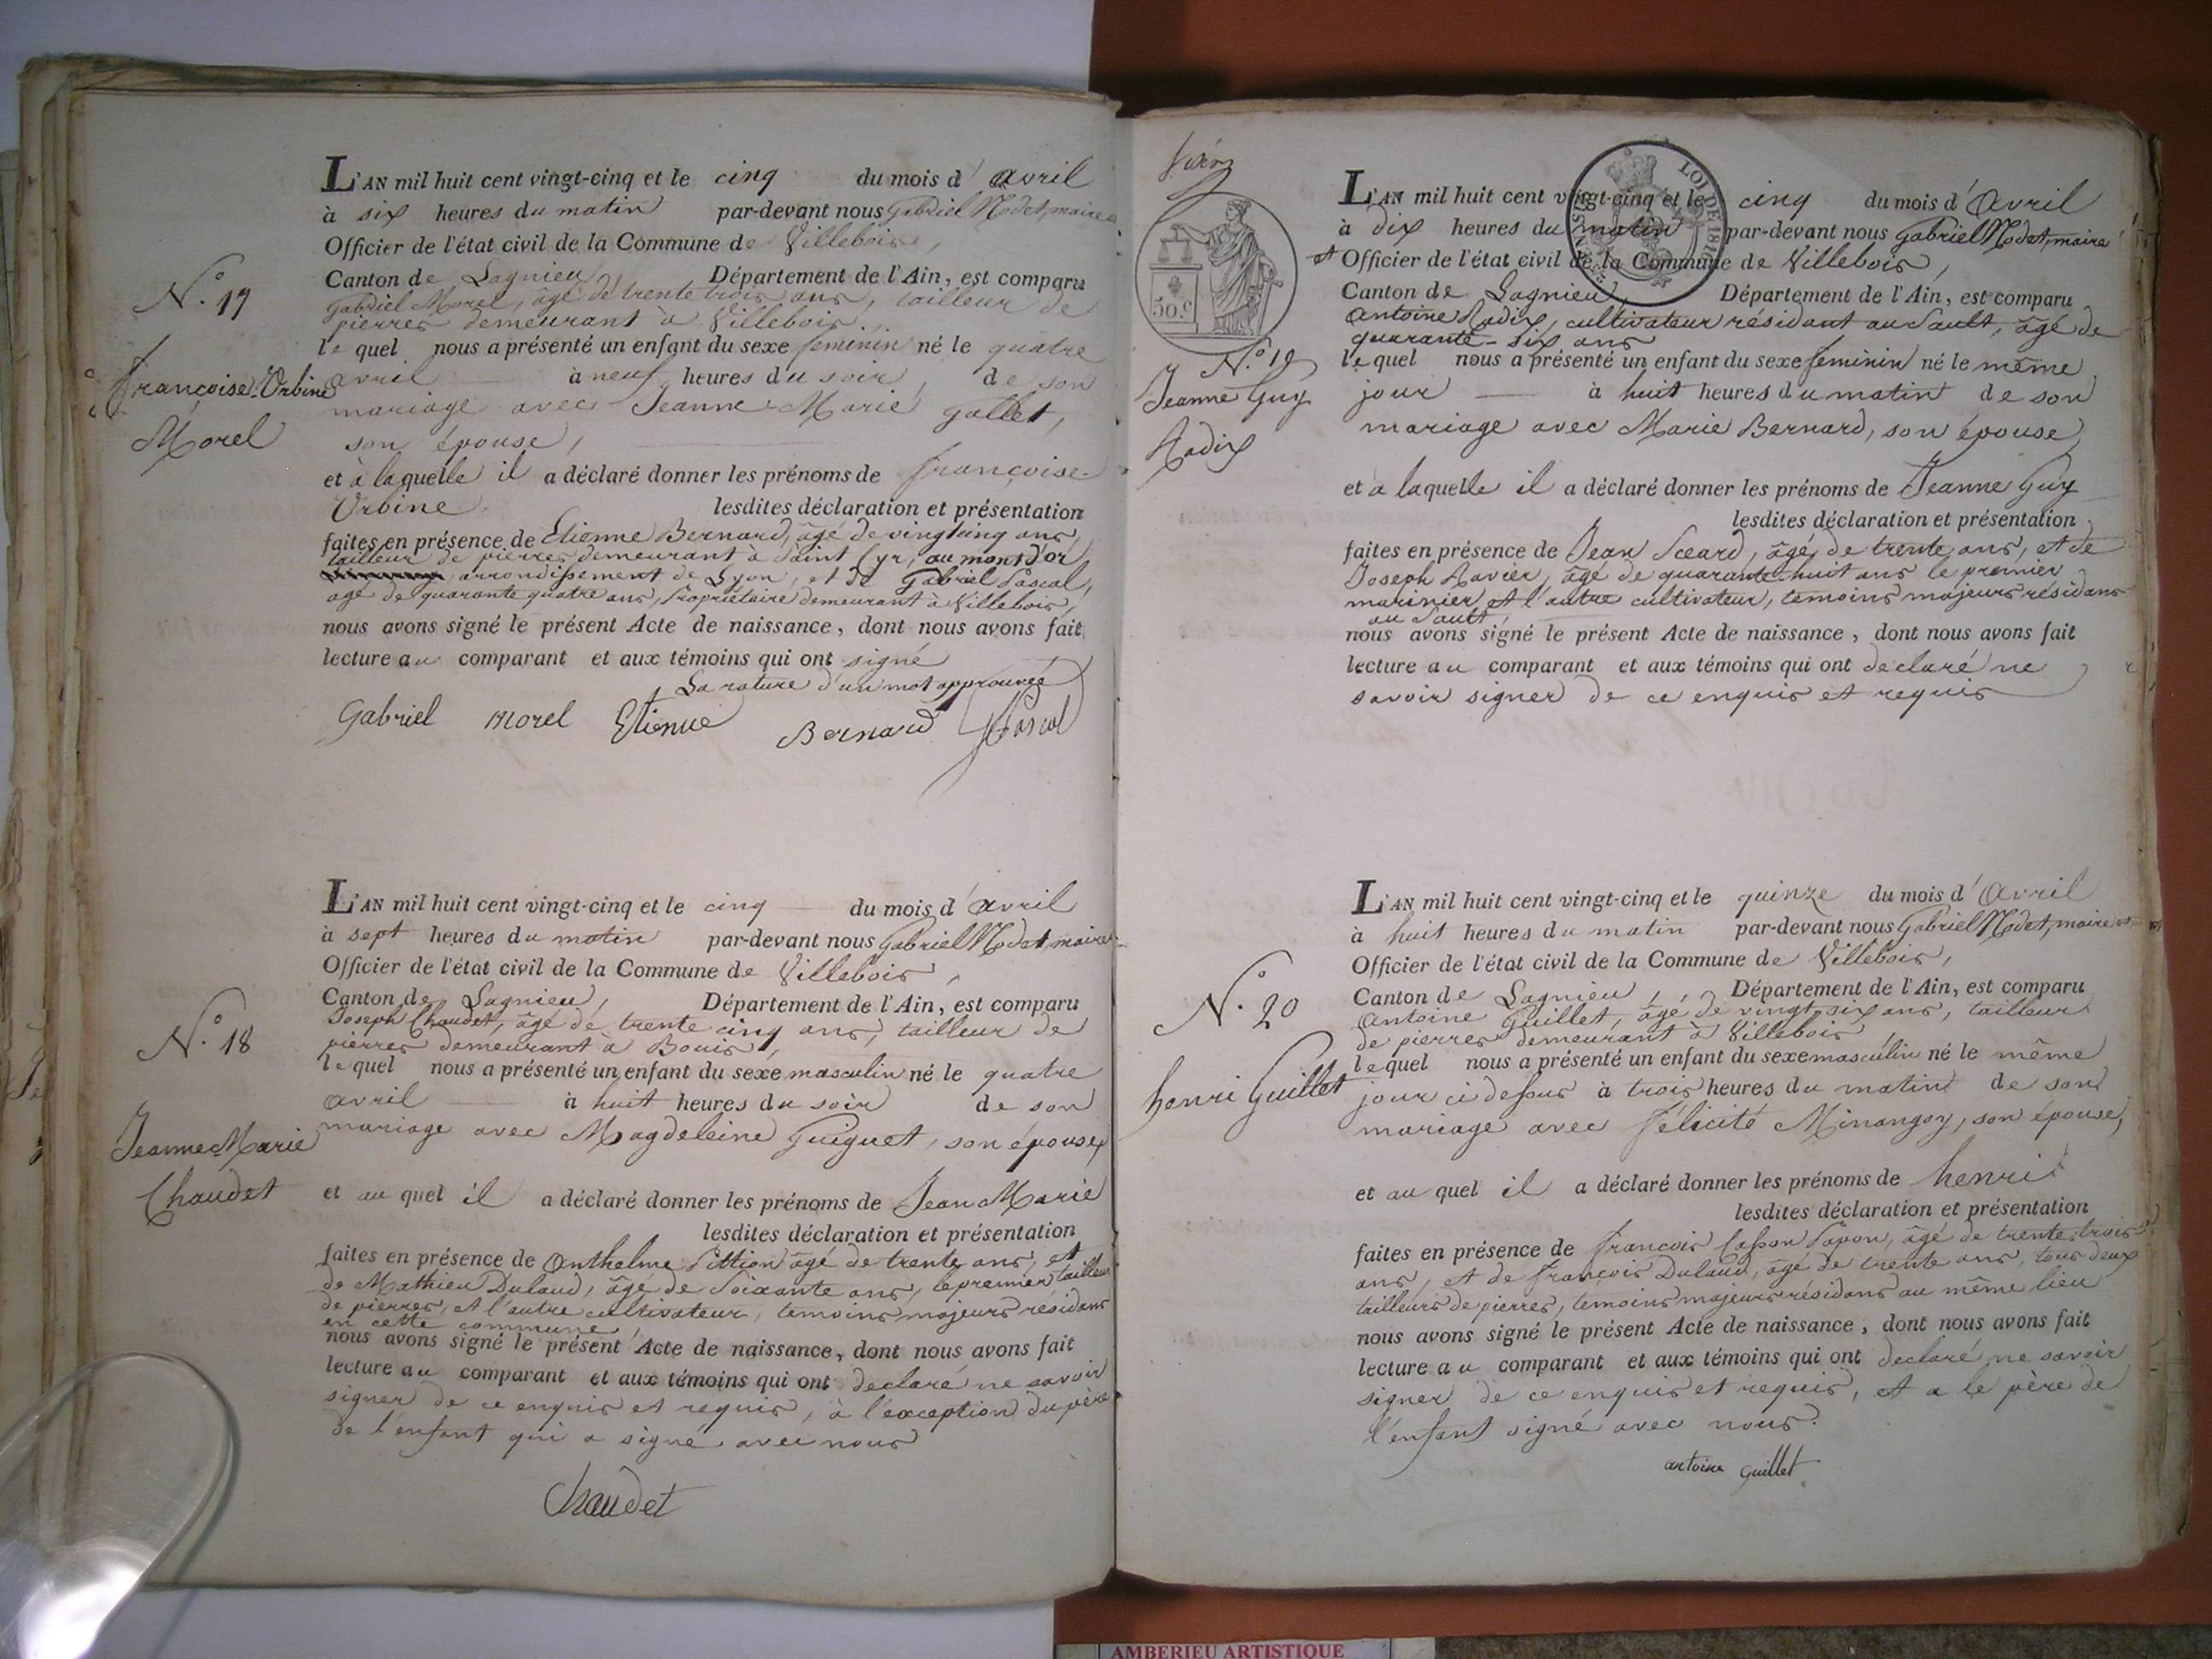 L'AN mil huit cent vingt-cinq et le cinq du mois d'avril
à six heures du matin par-devant nous Gabriel Modet, maire
Officier de l'état civil de la Commune de Villebois,
Canton de Lagnieu, Département de l'Ain, est comparu
Gabriel Morel, âgé de trente trois ans, tailleur de
pierres demeurant à Villebois,
lequel nous a présenté un enfant du sexe feminin né le quatre
avril à neuf heures du soir, de son
mariage avec Jeanne-Marie Gallet,
son épouse,
et à laquelle il a déclaré donner les prénoms de françoise-
Urbine lesdites déclaration et présentation
faites en présence de Etienne Bernard, âgé de vingt cinq ans,
tailleur de pierres demeurant à Saint Cyr, au mont d'or
arrondissement de Lyon, et de Gabriel Pascal,
âgé de quarante quatre ans, propriétaire demeurant à Villebois,
nous avons signé le présent Acte de naissance, dont nous avons fait
lecture au comparant et aux témoins qui ont signé
La rature d'un mot approuvée
Gabriel Morel Etienne Bernard Pascal
N.° 17
françoise-Urbine
Morel
L'AN mil huit cent vingt-cinq et le cinq du mois d'avril
à sept heures du matin par-devant nous Gabriel Modet, maire
Officier de l'état civil de la Commune de Villebois,
Canton de Lagnieu, Département de l'Ain, est comparu
Joseph Chaudet, âgé de trente cinq ans, tailleur de
pierres demeurant à Bouis,
lequel nous a présenté un enfant du sexe masculin né le quatre
avril à huit heures du soir de son
mariage avec Magdeleine Guiguet, son épouse,
et au quel il a déclaré donner les prénoms de Jean Marie
lesdites déclaration et présentation
faites en présence de Anthelme Pittion âgé de trente ans, et
de Mathieu Dulaud, âgé de soixante ans, le premier tailleur
de pierres, et l'autre cultivateur, temoins majeurs résidans
en cette commune,
nous avons signé le présent Acte de naissance, dont nous avons fait
lecture au comparant et aux témoins qui ont declaré ne savoir
signer de ce enquis et requis, à l'exception du père
de l'enfant qui a signé avec nous
Chaudet
N.° 18
Jeanne-Marie
Chaudet
L'AN mil huit cent vingt-cinq et le cinq du mois d'Avril
à dix heures du matin par-devant nous Gabriel Modet, maire
et Officier de l'état civil de la Commune de Villebois,
Canton de Lagnieu, Département de l'Ain, est comparu
Antoine Rodix, cultivateur résidant au Sault, âgé de
quarante-six ans
lequel nous a présenté un enfant du sexe feminin né le même
jour à huit heures du matin de son
mariage avec Marie Bernard, son épouse
et à laquelle il a déclaré donner les prénoms de Jeanne Guy
lesdites déclaration et présentation
faites en présence de Jean Sceard, âgé de trente ans, et de
Joseph Ravier, âgé de quarante-huit ans le premier
marinier et l'autre cultivateur, temoins majeurs résidans
au Sault,
nous avons signé le présent Acte de naissance, dont nous avons fait
lecture au comparant et aux témoins qui ont declaré ne
savoir signer de ce enquis et requis
50.c
LOI DE 1816
N.° 19
Jeanne Guy
Rodix
L'AN mil huit cent vingt-cinq et le quinze du mois d'Avril
à huit heures du matin par-devant nous Gabriel Modet, maire et
Officier de l'état civil de la Commune de Villebois,
Canton de Lagnieu, Département de l'Ain, est comparu
Antoine Guillet, âgé de vingt six ans, tailleur
de pierres demeurant à Villebois
lequel nous a présenté un enfant du sexe masculin né le même
jour ci dessus à trois heures du matin de son
mariage avec félicité Minangoy, son épouse,
et au quel il a déclaré donner les prénoms de henri
lesdites déclaration et présentation
faites en présence de françois Casson Papon, âgé de trente trois
ans, et de françois Dulaud, âgé de trente ans, tous deux
tailleurs de pierres, temoins majeurs résidans au même lieu
nous avons signé le présent Acte de naissance, dont nous avons fait
lecture au comparant et aux témoins qui ont declaré ne savoir
signer de ce enquis et requis, et a le père de
l'enfant signé avec nous.
antoine Guillet
N.° 20
henri Guillet
AMBERIEU ARTISTIQUE